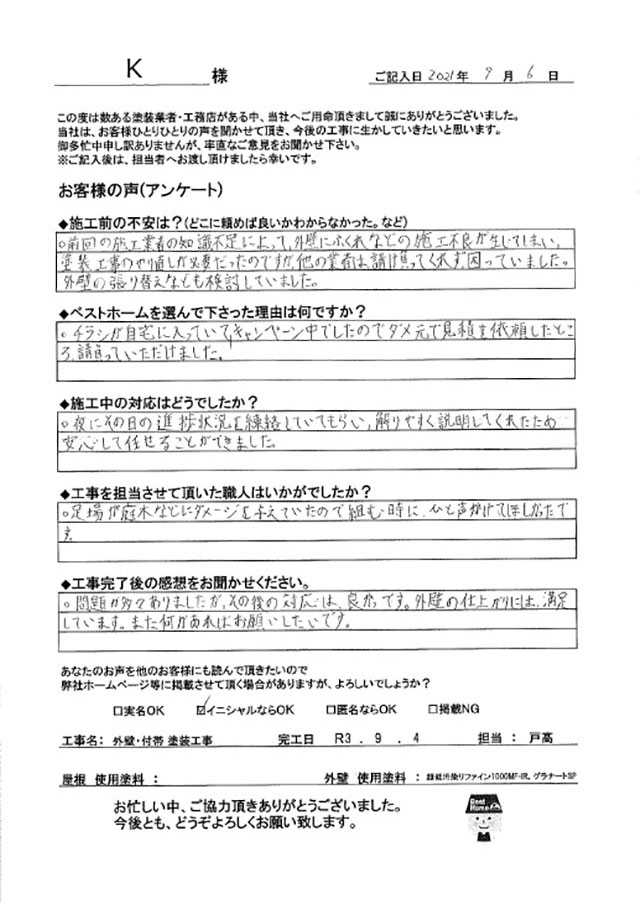 K 様
ご記入日 2021年 9月 6日
この度は数ある塗装業者・工務店がある中、当社へご用命頂きまして誠にありがとうございました。
当社は、お客様ひとりひとりの声を聞かせて頂き、今後の工事に生かしていきたいと思います。
御多忙中申し訳ありませんが、率直なご意見をお聞かせ下さい。
※ご記入後は、担当者へお渡し頂けましたら幸いです。
お客様の声(アンケート)
◆施工前の不安は?(どこに頼めば良いかわからなかった。など)
○前回の施工業者の知識不足によって、外壁にふくれなどの施工不良が生じてしまい、
塗装工事のやり直しが必要だったのですが他の業者は請け負ってくれず困っていました。
外壁の張り替えなども検討していました。
◆ベストホームを選んで下さった理由は何ですか?
○チラシが自宅に入っていてキャンペーン中でしたのでダメ元で見積を依頼したとこ
ろ、請負っていただけました。
◆施工中の対応はどうでしたか?
○夜にその日の進捗状況を連絡していてもらい、解りやすく説明してくれたため
安心して任せることができました。
◆工事を担当させて頂いた職人はいかがでしたか?
○足場が庭木などにダメージを与えていたので組む時に、ひと声かけてほしかったで
す。
◆工事完了後の感想をお聞かせください。
○問題が多々ありましたが、その後の対応は、良かったです。外壁の仕上がりには、満足
しています。また何かあればお願いしたいです。
あなたのお声を他のお客様にも読んで頂きたいので
弊社ホームページ等に掲載させて頂く場合がありますが、よろしいでしょうか?
□実名OK ☑イニシャルならOK □匿名ならOK □掲載NG
工事名: 外壁・付帯 塗装工事 完工日 R3 . 9 . 4 担当 : 戸高
屋根 使用塗料 : 外壁 使用塗料 : 超低汚染リファイン1000MF-IR、グラナートSP
お忙しい中、ご協力頂きありがとうございました。
今後とも、どうぞよろしくお願い致します。
Best Home